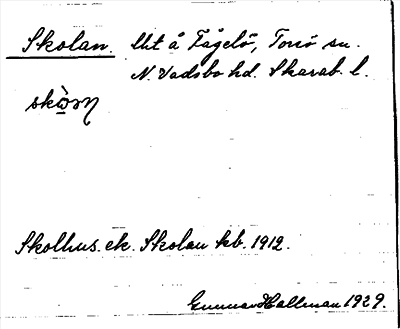 Skolan. Ht å Fågelö, Torsö sn.
N. Vadsbo hd. Skarab. l.
Skolhus. ek. Skolan kb. 1912.
Gunnar Hallman 1929.